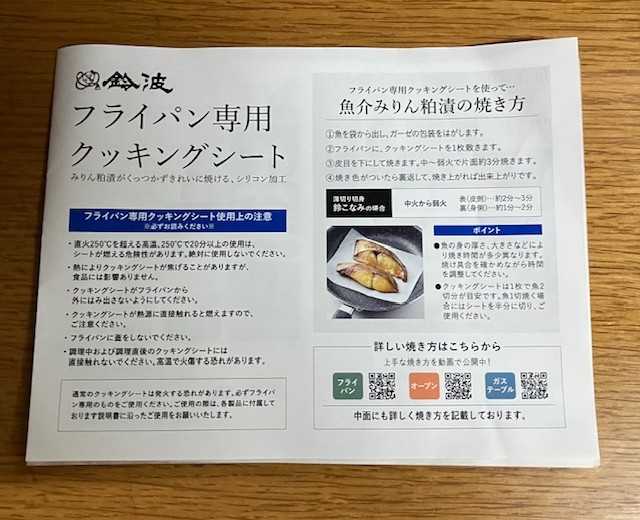 鈴波
フライパン専用
クッキングシート
みりん粕漬がくっつかずきれいに焼ける、シリコン加工
フライパン専用クッキングシート使用上の注意
※必ずお読みください※
・直火250℃を超える高温、250℃で20分以上の使用は、
シートが燃える危険性があります。絶対に使用しないでください。
・熱によりクッキングシートが焦げることがありますが、
食品には影響ありません。
・クッキングシートがフライパンから
外にはみ出さないようにしてください。
・クッキングシートが熱源に直接触れると燃えますので、
ご注意ください。
・フライパンに蓋をしないでください。
・調理中および調理直後のクッキングシートには
直接触れないでください。高温で火傷する恐れがあります。
通常のクッキングシートは発火する恐れがあります。必ずフライ
パン専用のものをご使用ください。ご使用の際は、各製品に付属して
おります説明書に沿ったご使用をお願いいたします。
フライパン専用クッキングシートを使って…
魚介みりん粕漬の焼き方
①魚を袋から出し、ガーゼの包装をはがします。
②フライパンに、クッキングシートを1枚敷きます。
③皮目を下にして焼きます。中〜弱火で片面約3分焼きます。
④焼き色がついたら裏返して、焼き上がれば出来上がりです。
薄切り切身
鈴こなみの場合
中火から弱火
表(皮側)…約2分〜3分
裏(身側)…約1分〜2分
ポイント
●魚の身の厚さ、大きさなどにより
焼き時間が多少異なります。
焼け具合を確かめながら時間
を調整してください。
●クッキングシートは1枚で魚2
切分が目安です。魚1切焼く場
合にはシートを半分に切り、ご
使用ください。
詳しい焼き方はこちらから
上手な焼き方を動画で公開中!
フライ
パン
オーブン
ガス
テーブル
中面にも詳しく焼き方を記載しております。